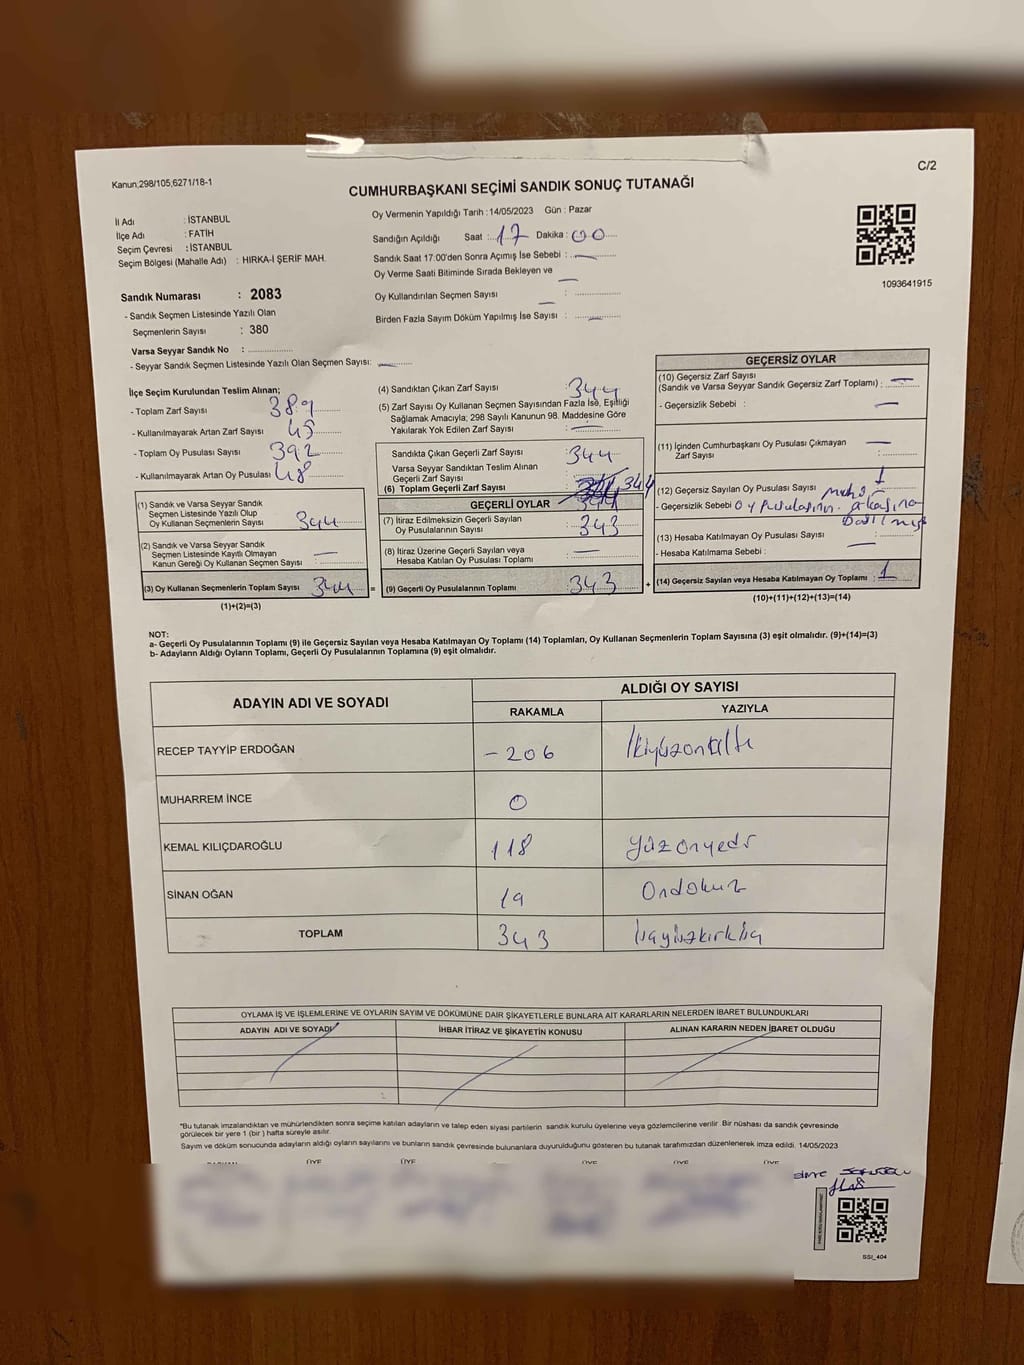 C/2
Kanun,298/105,6271/18-1
CUMHURBAŞKANI SEÇİMİ SANDIK SONUÇ TUTANAĞI
İl Adı : İSTANBUL
İlçe Adı : FATİH
Seçim Çevresi : İSTANBUL
Seçim Bölgesi (Mahalle Adı) : HIRKA-İ ŞERİF MAH.
Oy Vermenin Yapıldığı Tarih : 14/05/2023 Gün : Pazar
Sandığın Açıldığı Saat : 17 Dakika : 00
Sandık Saat 17:00'den Sonra Açımış İse Sebebi : —
Oy Verme Saati Bitiminde Sırada Bekleyen ve
Oy Kullandırılan Seçmen Sayısı : —
Birden Fazla Sayım Döküm Yapılmış İse Sayısı : —
1093641915
Sandık Numarası : 2083
- Sandık Seçmen Listesinde Yazılı Olan
Seçmenlerin Sayısı : 380
Varsa Seyyar Sandık No :
- Seyyar Sandık Seçmen Listesinde Yazılı Olan Seçmen Sayısı: —
İlçe Seçim Kurulundan Teslim Alınan;
- Toplam Zarf Sayısı 389
- Kullanılmayarak Artan Zarf Sayısı 45
- Toplam Oy Pusulası Sayısı 392
- Kullanılmayarak Artan Oy Pusulası 48
(1) Sandık ve Varsa Seyyar Sandık
Seçmen Listesinde Yazılı Olup
Oy Kullanan Seçmenlerin Sayısı 344
(2) Sandık ve Varsa Seyyar Sandık
Seçmen Listesinde Kayıtlı Olmayan
Kanun Gereği Oy Kullanan Seçmen Sayısı —
(3) Oy Kullanan Seçmenlerin Toplam Sayısı 344 =
(1)+(2)=(3)
(4) Sandıktan Çıkan Zarf Sayısı : 344
(5) Zarf Sayısı Oy Kullanan Seçmen Sayısından Fazla İse, Eşitliği
Sağlamak Amacıyla; 298 Sayılı Kanunun 98. Maddesine Göre
Yakılarak Yok Edilen Zarf Sayısı : —
Sandıkta Çıkan Geçerli Zarf Sayısı : 344
Varsa Seyyar Sandıktan Teslim Alınan
Geçerli Zarf Sayısı
(6) Toplam Geçerli Zarf Sayısı 344
GEÇERLİ OYLAR 344
(7) İtiraz Edilmeksizin Geçerli Sayılan
Oy Pusulalarının Sayısı : 343
(8) İtiraz Üzerine Geçerli Sayılan veya
Hesaba Katılan Oy Pusulası Toplamı : —
(9) Geçerli Oy Pusulalarının Toplamı : 343 +
GEÇERSİZ OYLAR
(10) Geçersiz Zarf Sayısı
(Sandık ve Varsa Seyyar Sandık Geçersiz Zarf Toplamı) : —
- Geçersizlik Sebebi : —
(11) İçinden Cumhurbaşkanı Oy Pusulası Çıkmayan
Zarf Sayısı : —
(12) Geçersiz Sayılan Oy Pusulası Sayısı : 1
- Geçersizlik Sebebi
Oy Pusulasının arkasına
(13) Hesaba Katılmayan Oy Pusulası Sayısı :
- Hesaba Katılmama Sebebi : —
(14) Geçersiz Sayılan veya Hesaba Katılmayan Oy Toplamı : 1
(10)+(11)+(12)+(13)=(14)
NOT:
a- Geçerli Oy Pusulalarının Toplamı (9) ile Geçersiz Sayılan veya Hesaba Katılmayan Oy Toplamı (14) Toplamları, Oy Kullanan Seçmenlerin Toplam Sayısına (3) eşit olmalıdır. (9)+(14)=(3)
b- Adayların Aldığı Oyların Toplamı, Geçerli Oy Pusulalarının Toplamına (9) eşit olmalıdır.
ADAYIN ADI VE SOYADI ALDIĞI OY SAYISI
RAKAMLA YAZIYLA
RECEP TAYYİP ERDOĞAN - 206
MUHARREM İNCE 0
KEMAL KILIÇDAROĞLU 118 Yüzonyedi
SİNAN OĞAN 19 Ondokuz
TOPLAM 343 üçyüzkırküç
OYLAMA İŞ VE İŞLEMLERİNE VE OYLARIN SAYIM VE DÖKÜMÜNE DAİR ŞİKAYETLERLE BUNLARA AİT KARARLARIN NELERDEN İBARET BULUNDUKLARI
ADAYIN ADI VE SOYADI İHBAR İTİRAZ VE ŞİKAYETİN KONUSU ALINAN KARARIN NEDEN İBARET OLDUĞU
*Bu tutanak imzalandıktan ve mühürlendikten sonra seçime katılan adayların ve talep eden siyasi partilerin sandık kurulu üyelerine veya gözlemcilerine verilir. Bir nüshası da sandık çevresinde
görülecek bir yere 1 (bir ) hafta süreyle asılır.
Sayım ve döküm sonucunda adayların aldığı oyların sayılarını ve bunların sandık çevresinde bulunanlara duyurulduğunu gösteren bu tutanak tarafımızdan düzenlenerek imza edildi. 14/05/2023
ÜYE ÜYE ÜYE ÜYE ÜYE
SSI_404